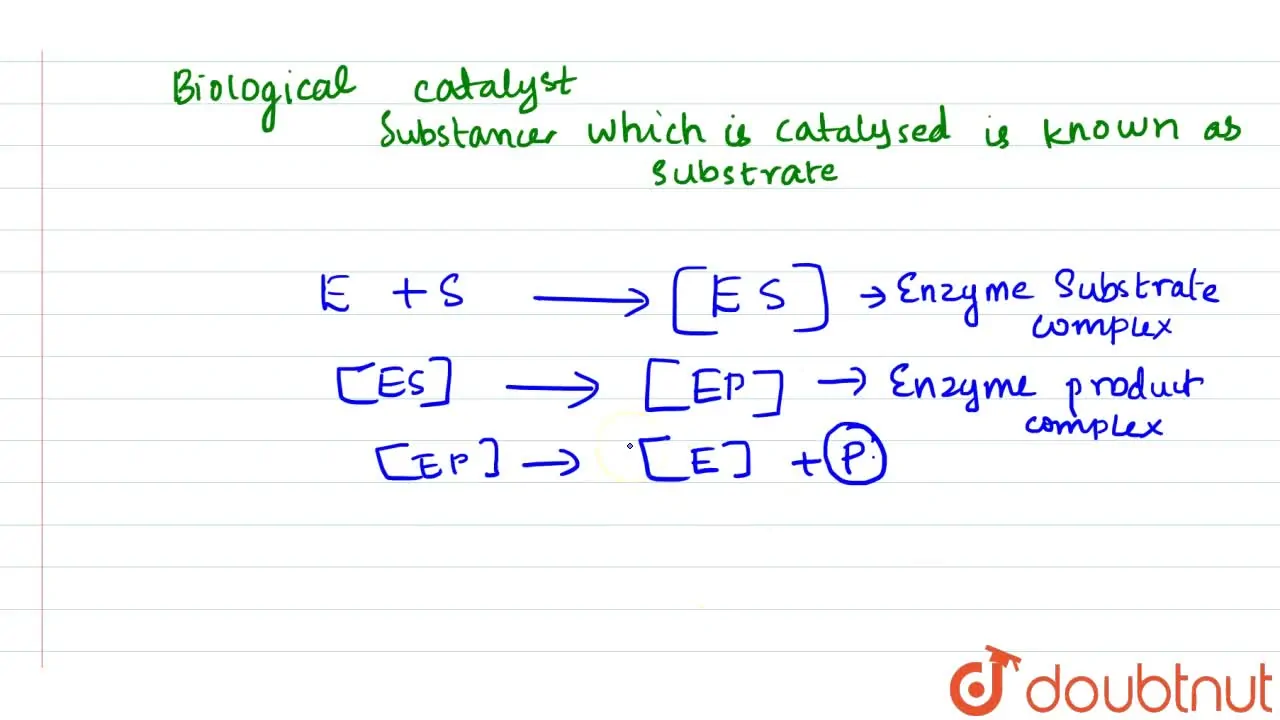 Biological catalyst
Substances which is catalysed is known as
substrate
E + S → [E S] → Enzyme Substrate
complex
[ES] → [EP] → Enzyme product
complex
[EP] → [E] + P
doubtnut